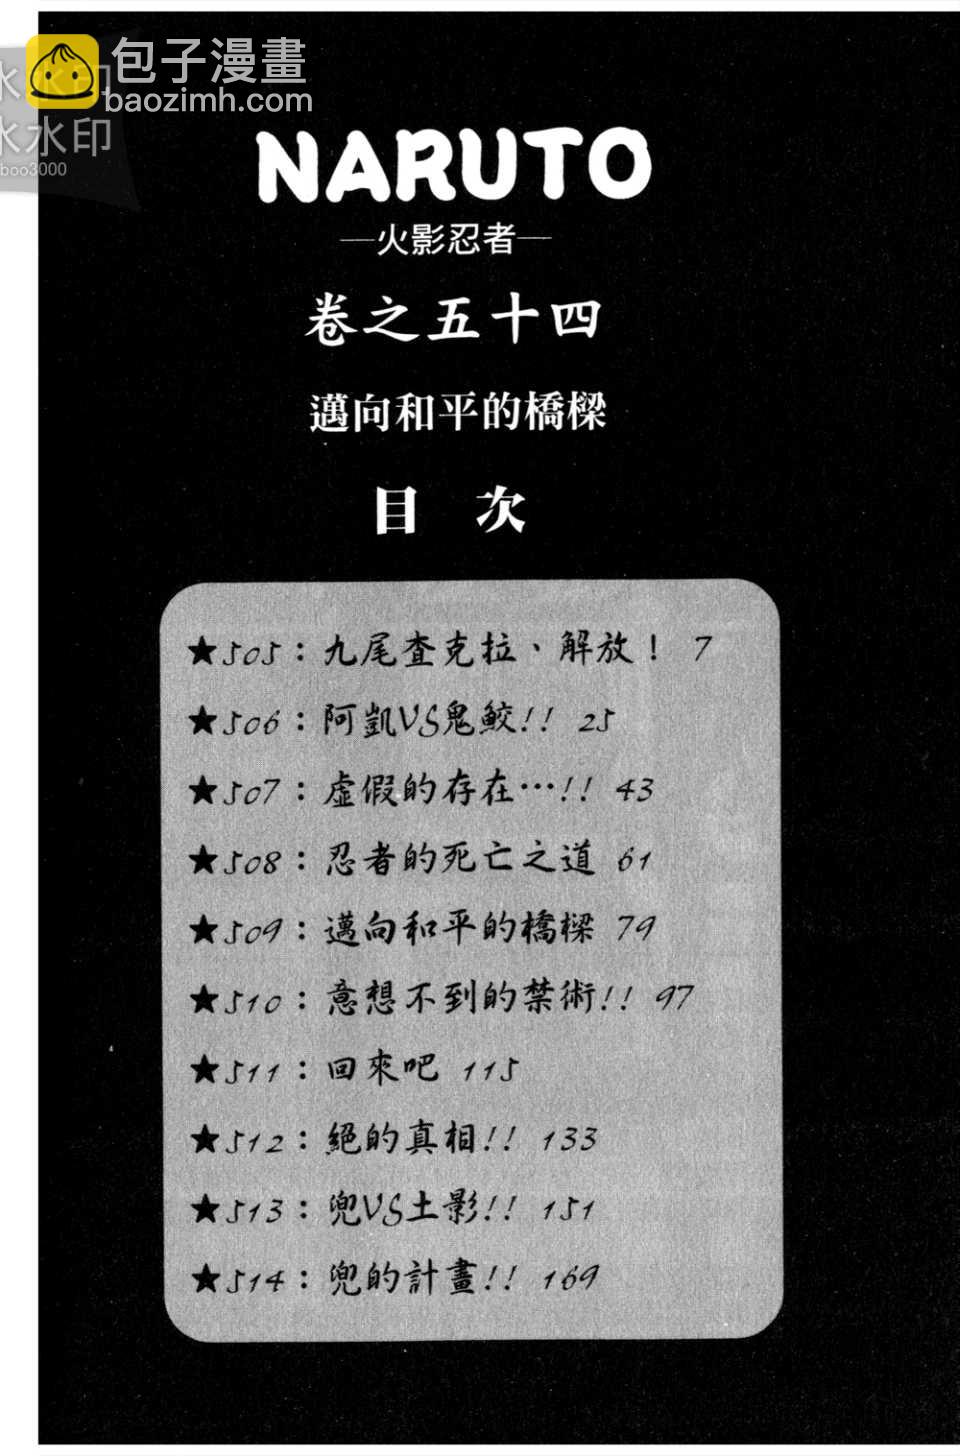 包子漫畫
baozimh.com
水水印
水水印
boo3000
NARUTO
—火影忍者—
卷之五十四
邁向和平的橋樑
目 次
★505：九尾查克拉、解放！ 7
★506：阿凱VS鬼鮫!! 25
★507：虛假的存在…!! 43
★508：忍者的死亡之道 61
★509：邁向和平的橋樑 79
★510：意想不到的禁術!! 97
★511：回來吧 115
★512：絕的真相!! 133
★513：兜VS土影!! 151
★514：兜的計畫!! 169